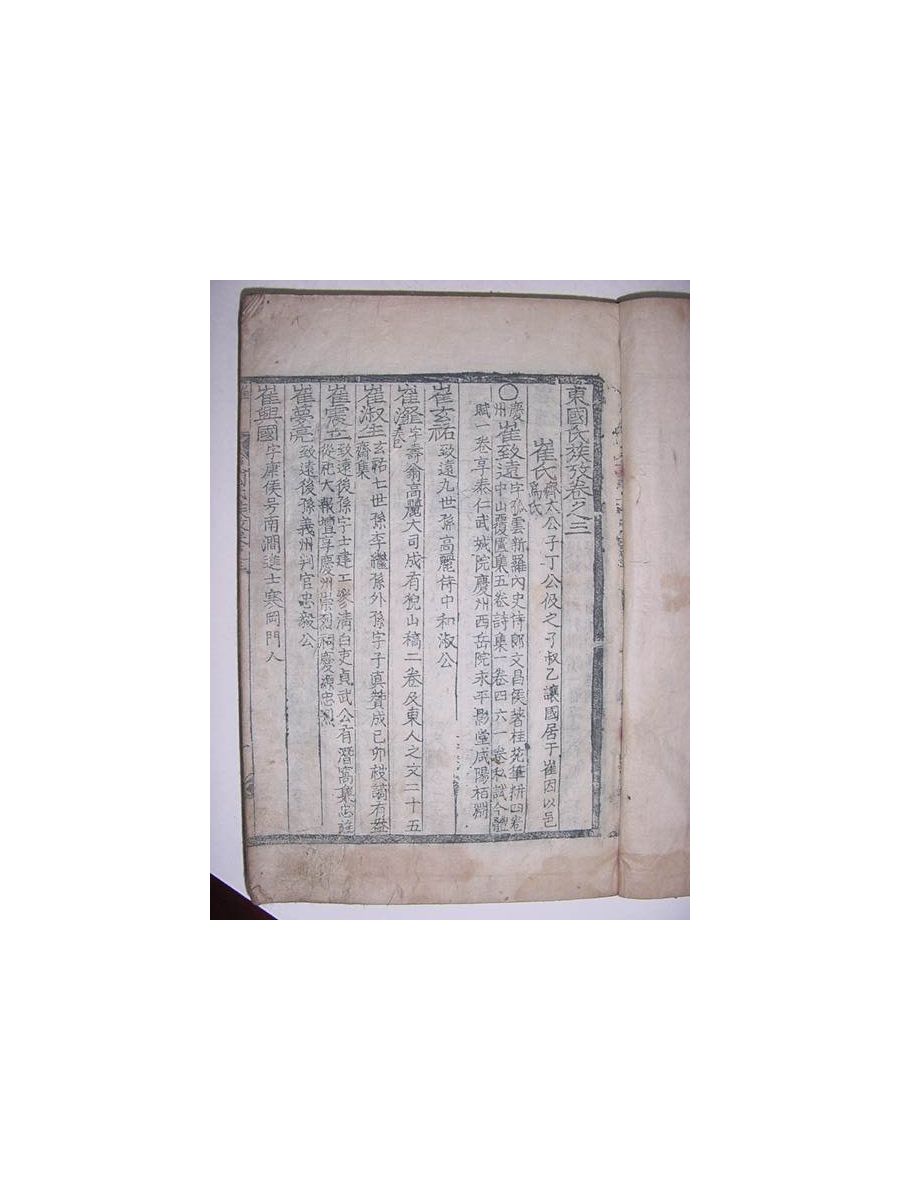 東國氏族攷卷之三
崔氏 齊太公子丁公伋之子叔乙讓國居于崔因以邑
爲氏
○慶州 崔致遠 字孤雲新羅內史侍郎文昌侯著桂苑筆耕四卷
中山覆匱集五卷詩集一卷四六一卷私試今體
賦一卷享泰仁武城院慶州西岳院永平影堂咸陽栢淵
崔玄祐 致遠九世孫高麗侍中和淑公
崔瀣 字壽翁高麗大司成有猊山稿二卷及東人之文二十五
崔淑生 玄祐七世孫李繼孫外孫字子真贊成己卯被謫有盎
齋集
崔震立 致遠後孫字士建工參清白吏貞武公有潛窩集
從祀大報壇享慶州崇烈祠慶源忠烈
崔夢亮 致遠後孫義州判官忠毅公
崔興國 字康侯号南澗進士寒岡門人